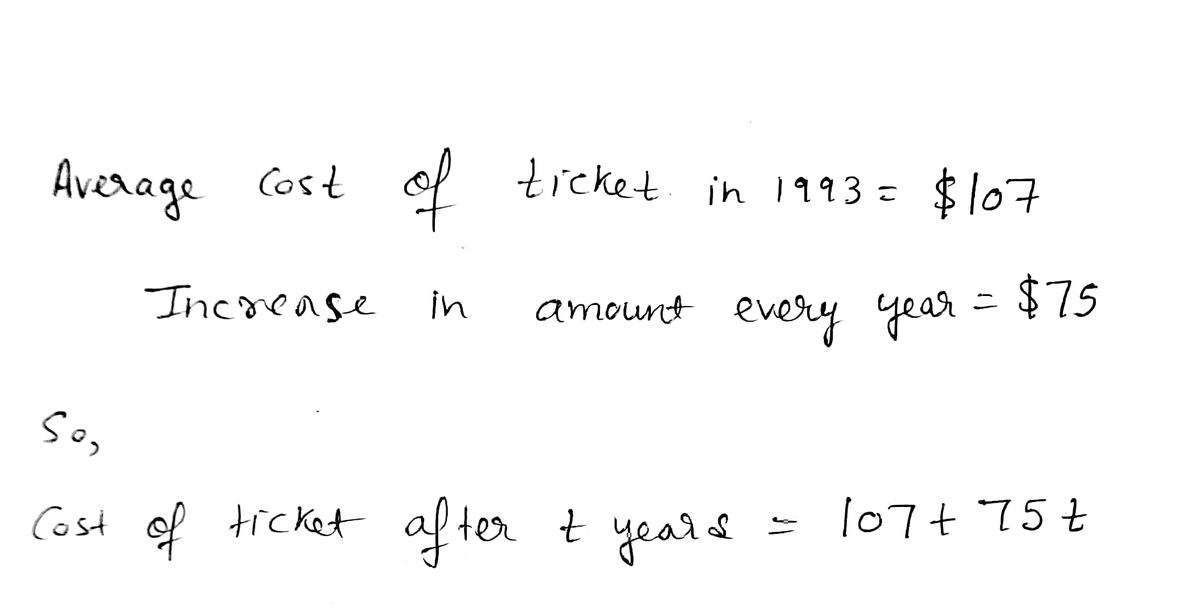 Average Cost of ticket in 1993 = $107
Increase in amount every year = $75
So,
Cost of ticket after t years = 107 + 75t